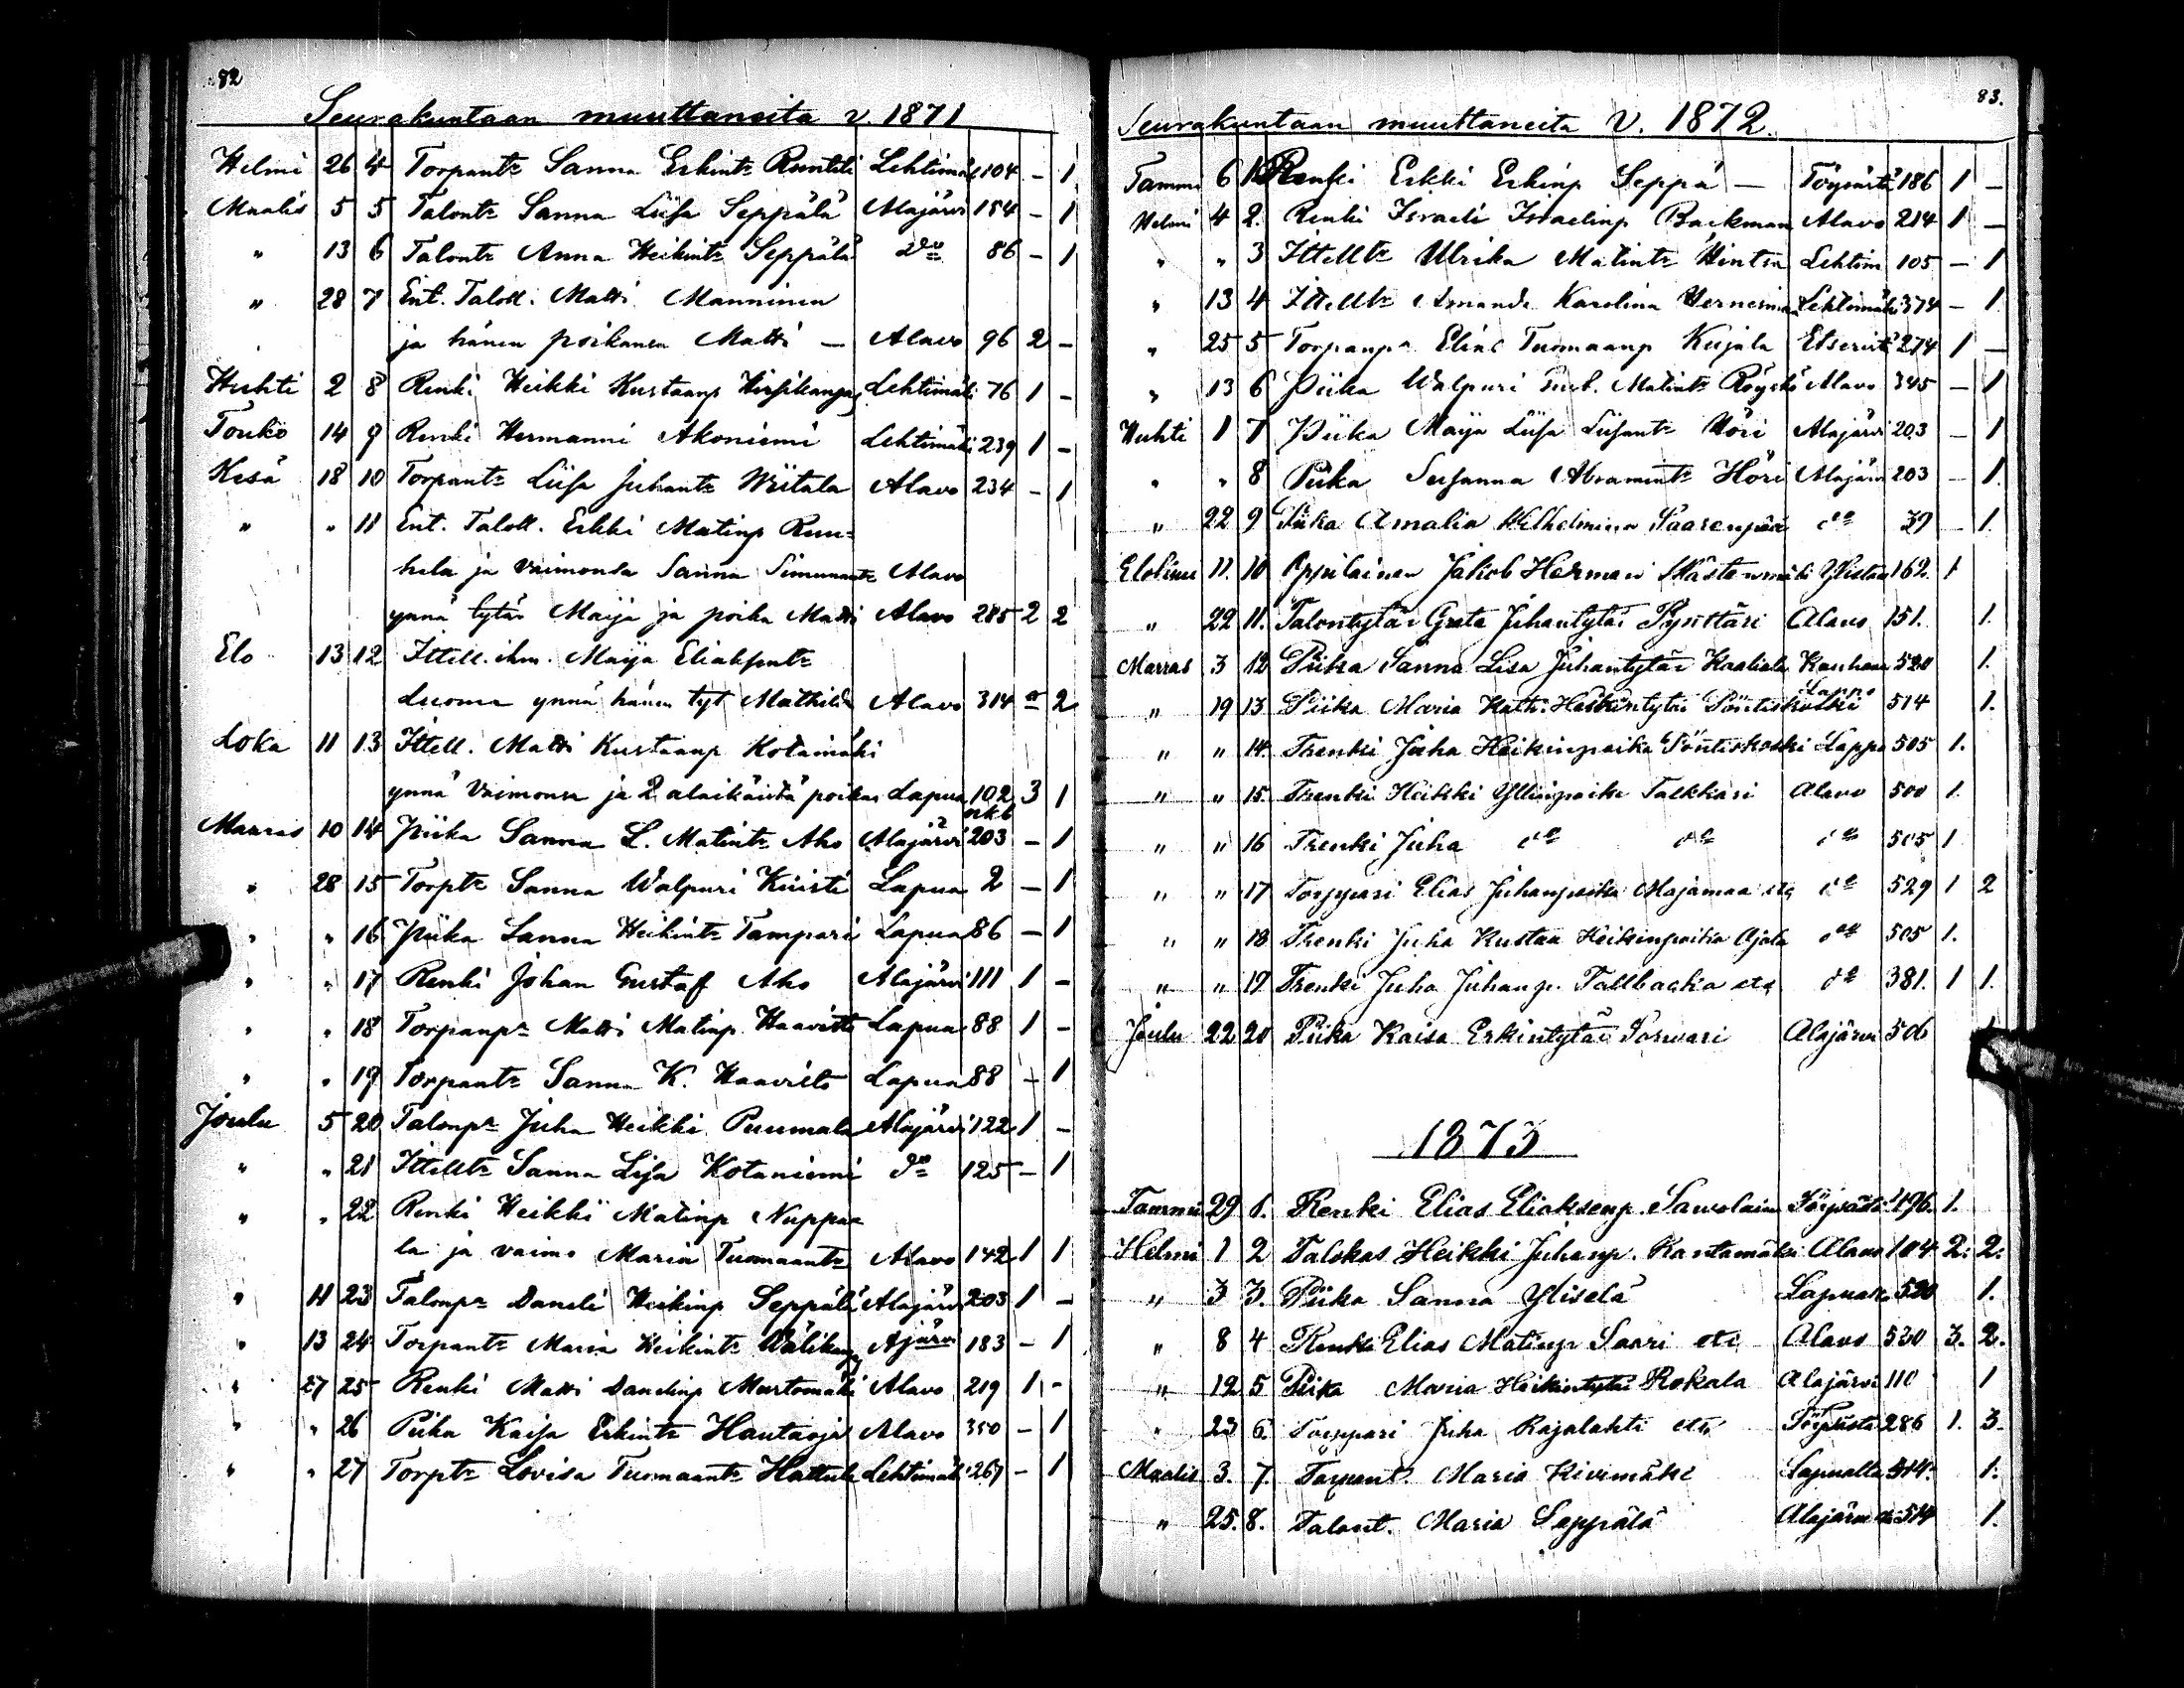 82
Seurakuntaan muuttaneita v. 1871
Helmi 26 4 Torpantr Sanna Erkintr Lehtimäki 104 – 1
Maalis 5 5 Talontr Sanna Liisa Seppälä Alajärvi 154 – 1
" 13 6 Talontr Anna Heikintr Seppälä Do 86 – 1
" 28 7 Ent. Taloll. Matti Manninen
ja hänen poikansa Matti — Alavo 96 2 –
Huhti 2 8 Renki Heikki Kustaanp Hirsikangas Lehtimäki 76 1 –
Touko 14 9 Renki Hermanni Akoniemi Lehtimäki 239 1 –
Kesä 18 10 Torpantr Liisa Juhantr Wiitala Alavo 234 – 1
" " 11 Ent. Taloll. Erkki Matinp Ruu=
hela ja vaimonsa Sanna Simunantr Alavo
ynnä tytär Maija ja poika Matti Alavo 285 2 2
Elo 13 12 Ittell. ihm. Maija
Luoma ynnä hänen tyt Mathilda Alavo 314 – 2
Loka 11 13 Ittell. Matti Kustaanp Kotamäki
ynnä vaimonsa ja 2 alaikäistä poikaa Lapua 102 3 1
Marras 10 14 Piika Sanna L. Matintr Aho Alajärvi 203 – 1
" 28 15 Torptr Sanna Walpuri Kuisti Lapua 2 – 1
" " 16 Piika Sanna Heikintr Tampari Lapua 86 – 1
" " 17 Renki Johan Gustaf Aho Alajärvi 111 1 –
" " 18 Torpanpr Matti Matinp Haavisto Lapua 88 1 –
" " 19 Torpantr Sanna K. Haavisto Lapua 88 – 1
Joulu 5 20 Talonpr Juha Heikki Puumala Alajärvi 122 1 –
" " 21 Ittelltr Sanna Lisa Kotaniemi Do 125 – 1
" " 22 Renki Heikki Matinp Nuppa=
la ja vaimo Maria Tuomaantr Alavo 142 1 1
" 11 23 Talonpr Daneli Heikinp Seppälä Alajärvi 203 1 –
" 13 24 Torpantr Maria Heikintr Wälikangas Ajärvi 183 – 1
" 27 25 Renki Matti Danelinp Murtomäki Alavo 219 1 –
" " 26 Piika Kaisa Erkintr Hautaoja Alavo 350 – 1
" " 27 Torptr Lovisa Tuomaantr Hattula Lehtimäki 267 – 1
83.
Seurakuntaan muuttaneita v. 1872.
Tammi 6 1 Renki Erkki Erkinp Seppä — Töysästä 186 1 –
Helmi 4 2. Renki Israeli Israelinp Backman Alavo 214 1 –
" " 3 Ittelltr Ulrika Matintr Hintsa Lehtim 105 – 1
" 13 4 Ittelltr Amanda Karolina Lehtimäki 374 – 1.
" 25 5 Torpanpr Elias Tuomaanp Kujala Etseristä 274 1 –
" 13 6 Piika Walpuri Matintr Alavo 345 – 1
Huhti 1 7 Piika Maija Liisa Liisantr Höri Alajärvi 203 – 1
" " 8 Piika Susanna Abramintr Höri Alajärvi 203 – 1.
" 22 9 Piika Amalia Wilhelmina Saarenpää do 39 – 1.
Elokuu 11. 10 Oppilainen Jakob Herman Ylistaro 162. 1
" 22 11. Talontytär Greta Juhantytär Pynttäri Alavo 151. 1.
Marras 3 12 Piika Sanna Lisa Juhantytär Kaaliala Kauhava 520 1.
" 19 13 Piika Maria Kath. Heikintytär Pöntiskoski Lappo 514 1.
" " 14. Trenki Juha Heikinpoika Pöntiskoski Lappo 505 1.
" " 15. Trenki Heikki Yllinpoika Talkkari Alavo 500 1.
" " 16 Trenki Juha do do do 505 1
" " 17 Torppari Elias Juhanpoika Majamaa etc do 529 1 2
" " 18 Trenki Juha Kustaa Heikinpoika Ajola do 505 1.
" " 19 Trenki Juha Juhanp. Tallbacka etc do 381. 1 1.
Joulu 22 20 Piika Kaisa Erkintytär Porvari Alajärvi 506 1
1873
Tammi 29 1. Renki Elias Eliaksenp. Savolainen Töysästä 196. 1.
Helmi 1 2 Talokas Heikki Juhanp. Rantamäki Alavo 104 2. 2.
" 3 3. Piika Sanna Ylisela Lapualta 520 1.
" 8 4 Renki Elias Matinp Saari etc Alavo 530 3. 2.
" 12 5 Piika Maria Heikintytär Kokala Alajärvi 110 1
" 23 6. Torppari Juha Rajalahti etc Töysästä 286 1. 3.
Maalis 3. 7. Torpant. Maria Kivimäki Lapualta 514. 1.
" 25. 8. Talont. Maria Seppälä Alajärveltä 514 1.